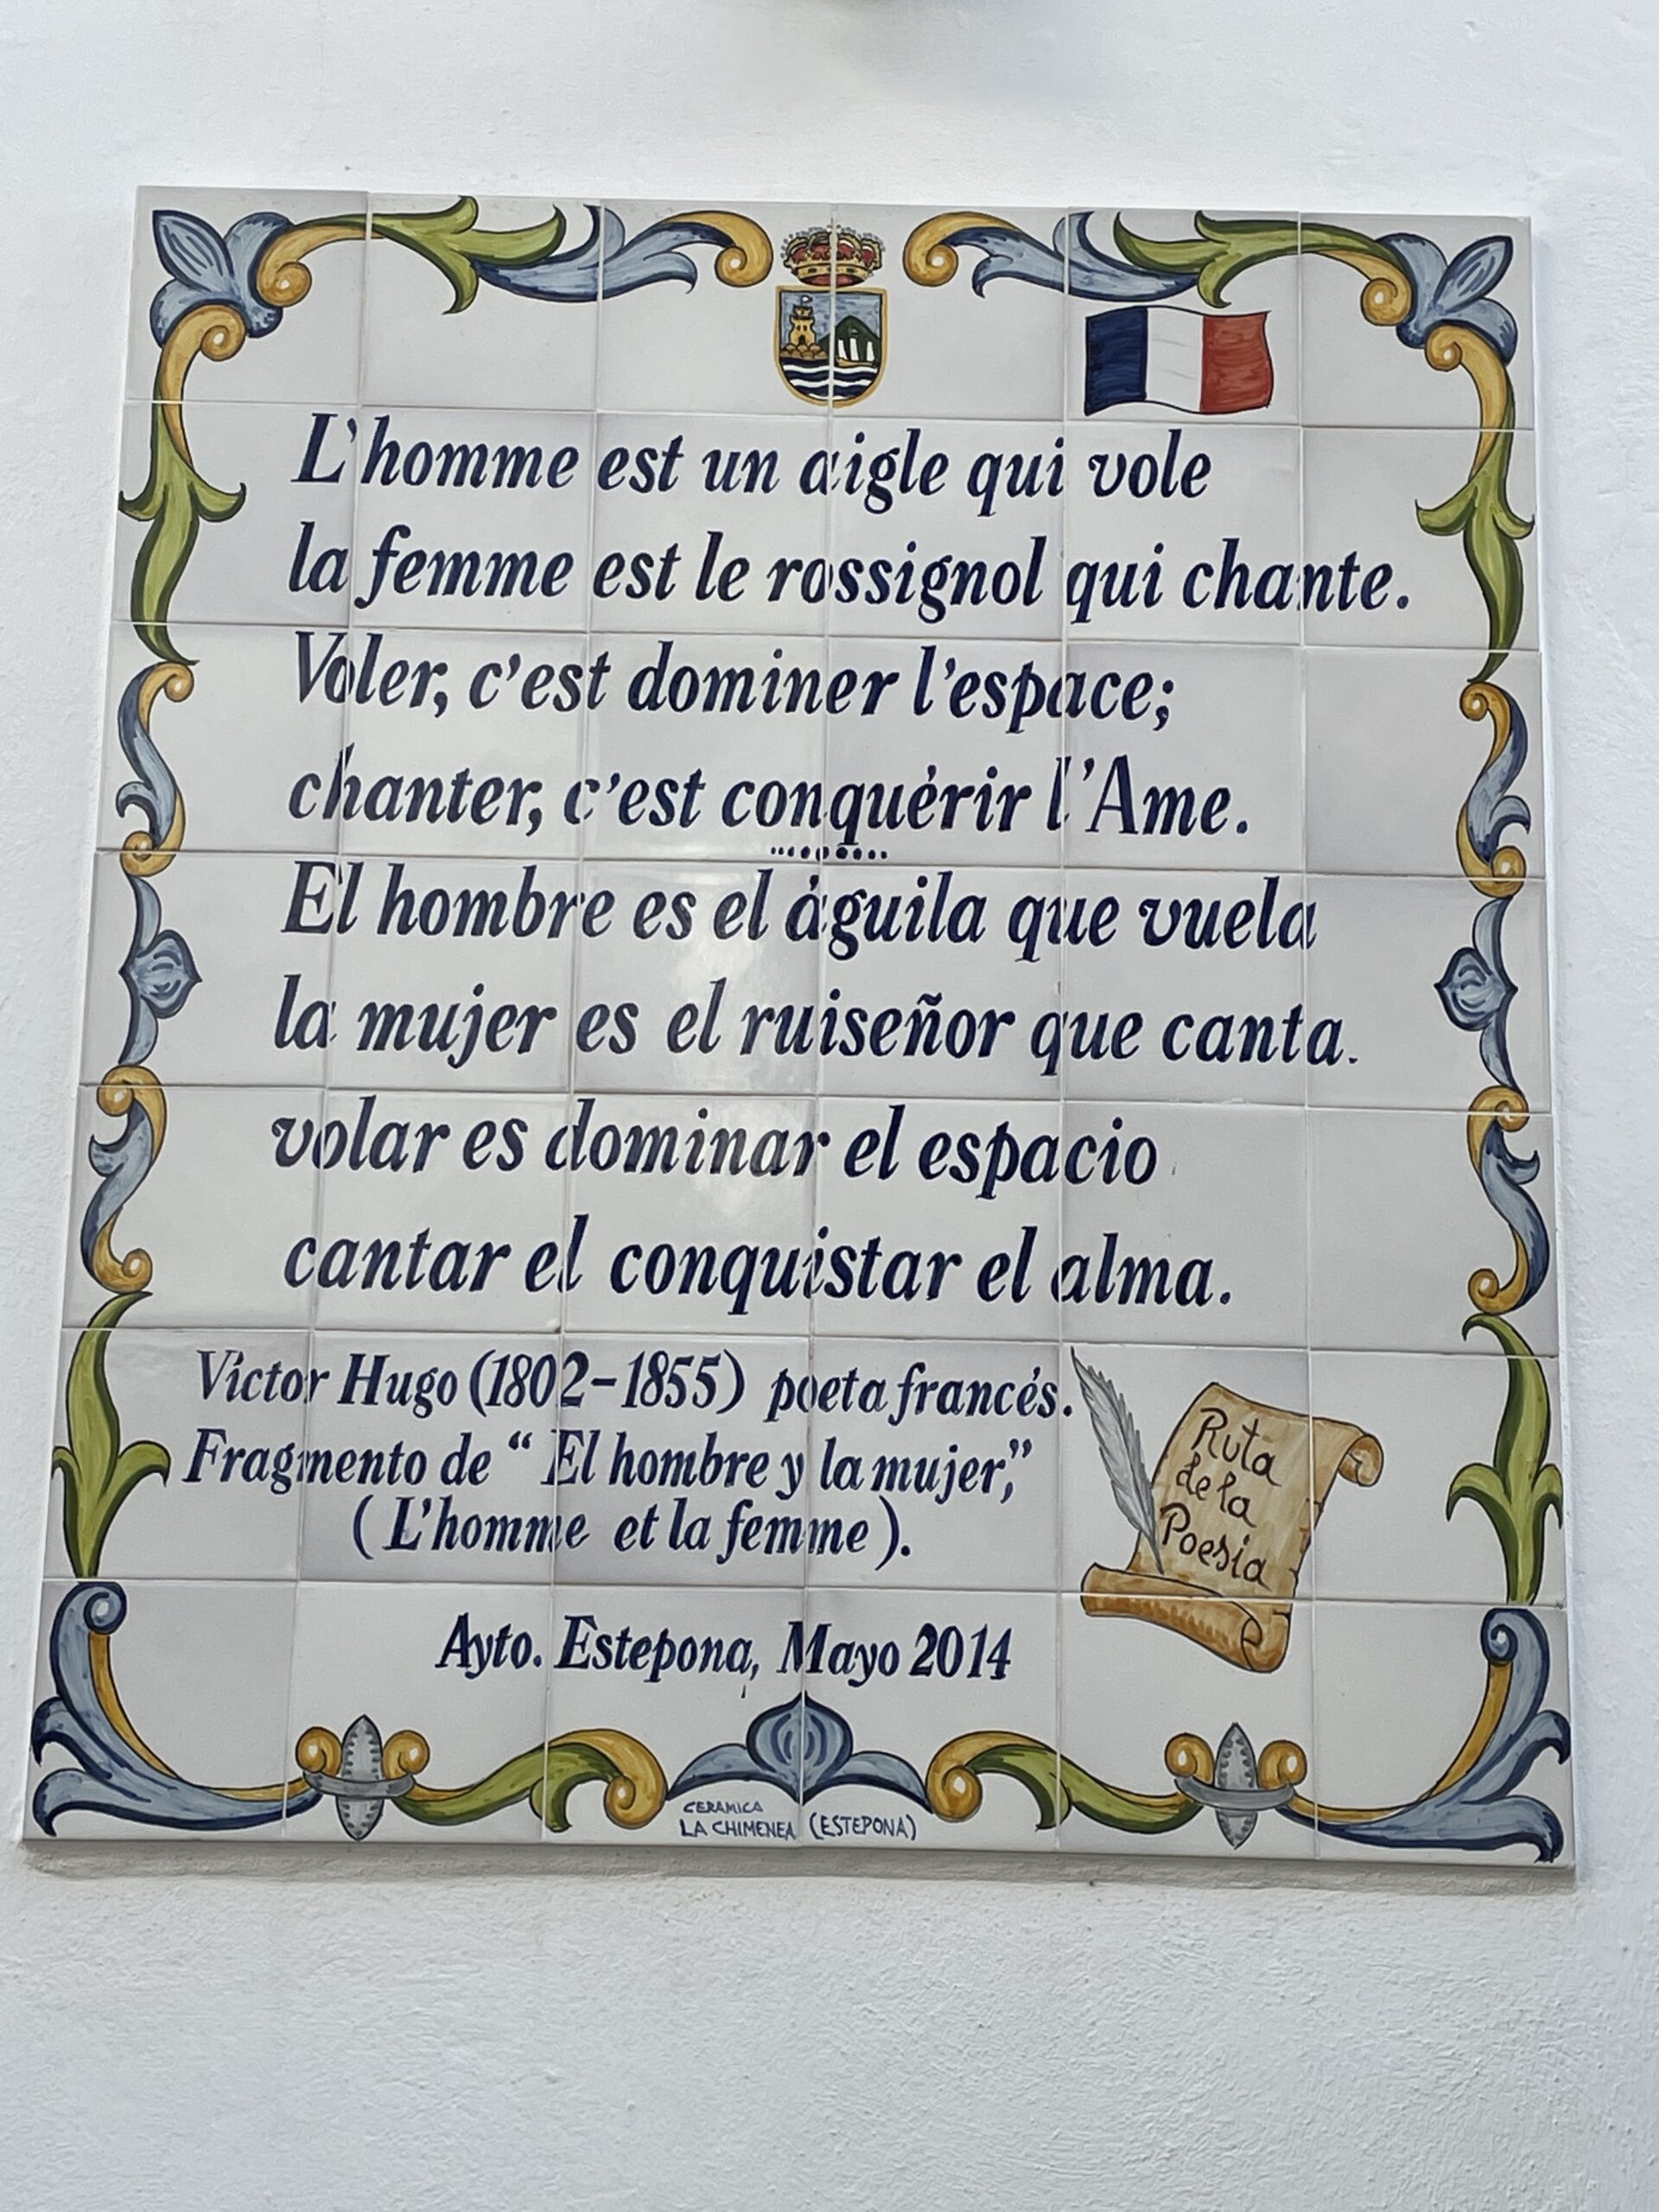 L'homme est un aigle qui vole
la femme est le rossignol qui chante.
Voler, c'est dominer l'espace;
chanter, c'est conquérir l'Ame.
El hombre es el águila que vuela
la mujer es el ruiseñor que canta.
volar es dominar el espacio
cantar el conquistar el alma.
Víctor Hugo (1802-1855) poeta francés.
Fragmento de “ El hombre y la mujer,”
( L'homme et la femme ).
Ruta
de la
Poesía
Ayto. Estepona, Mayo 2014
CERAMICA
LA CHIMENEA (ESTEPONA)